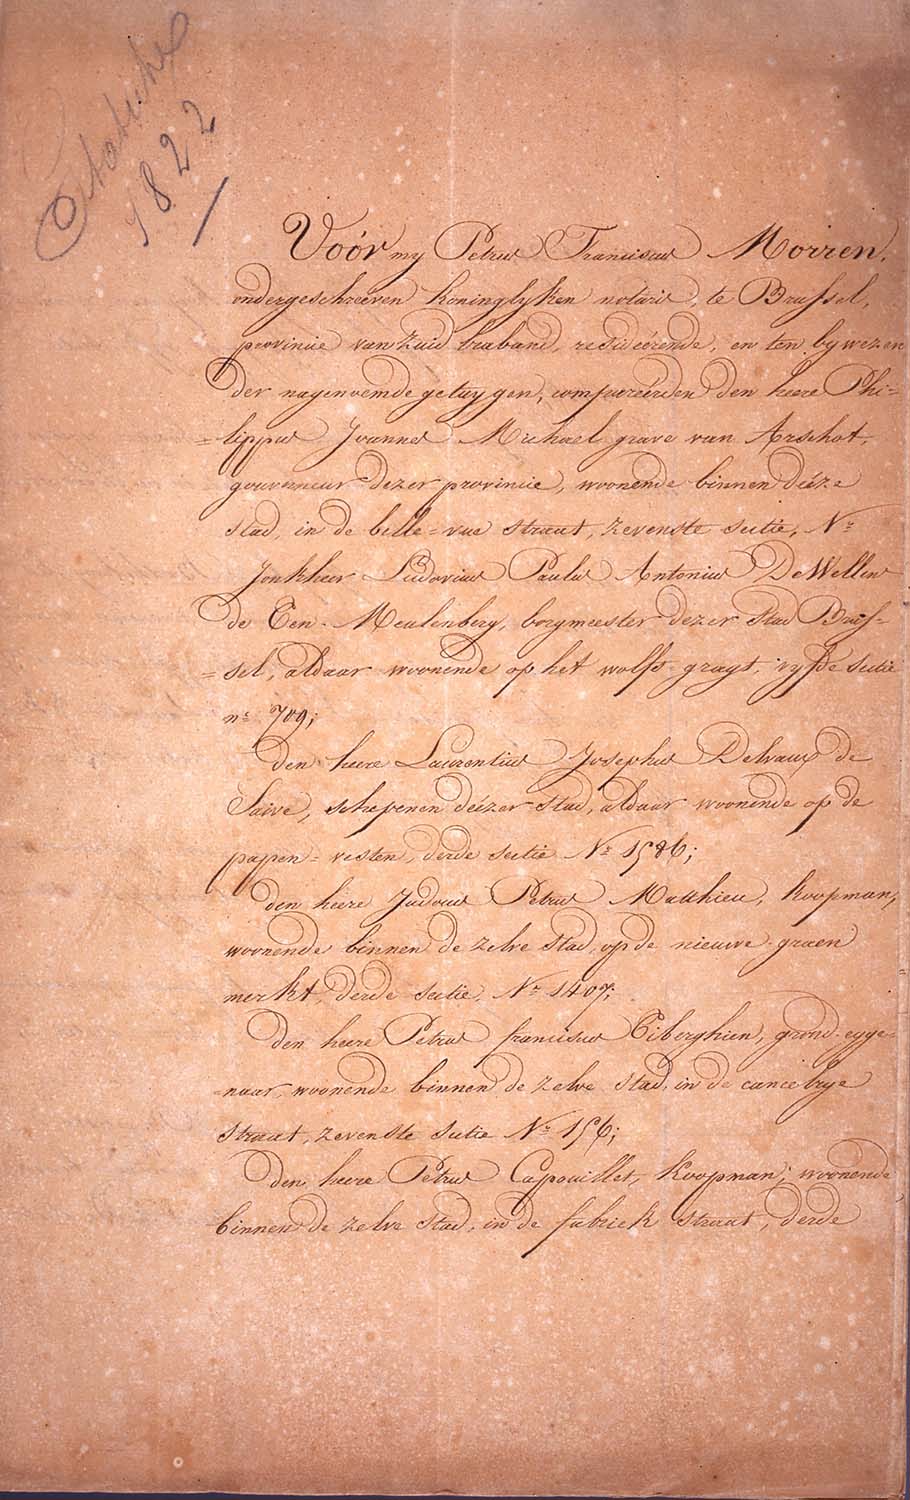 1822
Voór my Petrus Franciscus Morren,
ondergeschreeven koninglyken notaris, te Brussel,
provincie van Zuid braband, resideérende, en ten bywezen
der nagenoemde getuygen, compareérden den heere Phi=
=lippus Joannes Michael grave van Arschot,
gouverneur dezer provincie, woonende binnen deéze
stad, in de belle=vue straat, zevenste sectie, N.º
Jonkheer Ludovicus Paulus Antonius De Wellens
de Ten-Meulenberg, borgmeester dezer stad Brus=
=sel, aldaar woonende op het wolfs-gragt, vyfde sectie
n.º 709;
den heere Laurentius Josephus Delvaux de
Saive, schepenen deézer stad, aldaar woonende op de
papen=vesten, derde sectie N.º 1586;
den heere Judocus Petrus Matthieu, koopman,
woonende binnen de zelve stad, op de nieuwe-graen
merkt, derde sectie, N.º 1407;
den heere Petrus franciscus Tiberghien, grond-eyge=
=naar, woonende binnen de zelve stad, in de cancelrye
straat, zevenste sectie N.º 156;
den heere Petrus Capouillet, koopman, woonende
binnen de zelve stad, in de fabriek straat, derde